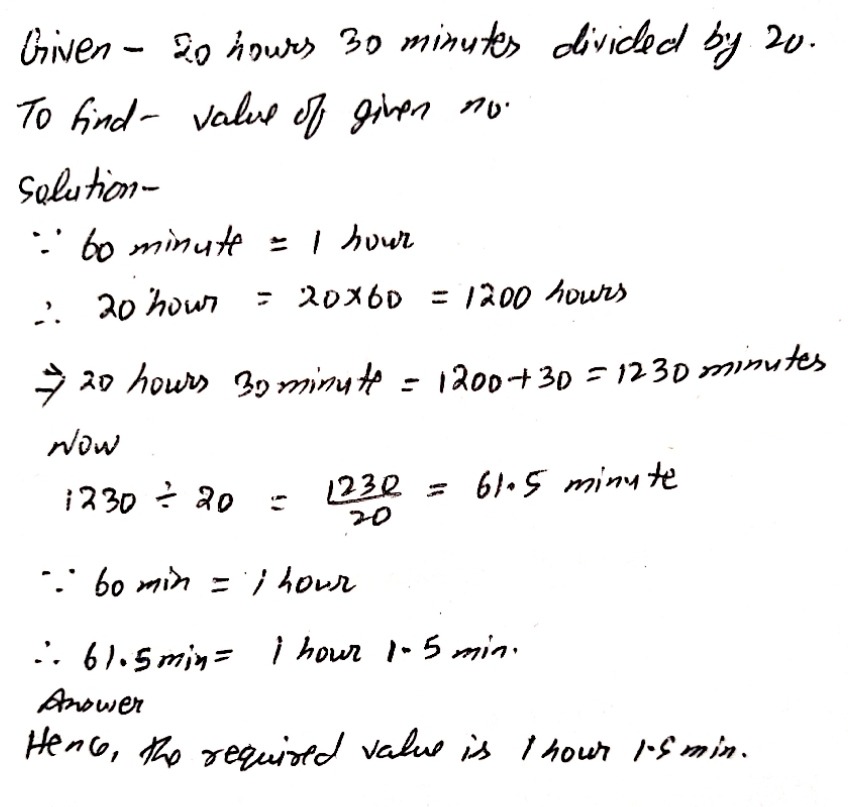 Given - 20 hours 30 minutes divided by 20.
To find - value of given no.
Solution -
∵ 60 minute = 1 hour
∴ 20 hour = 20×60 = 1200 hours
⇒ 20 hours 30 minute = 1200+30 = 1230 minutes
Now
1230 ÷ 20 = 1230/20 = 61.5 minute
∵ 60 min = 1 hour
∴ 61.5 min = 1 hour 1.5 min.
Answer
Hence, the required value is 1 hour 1.5 min.